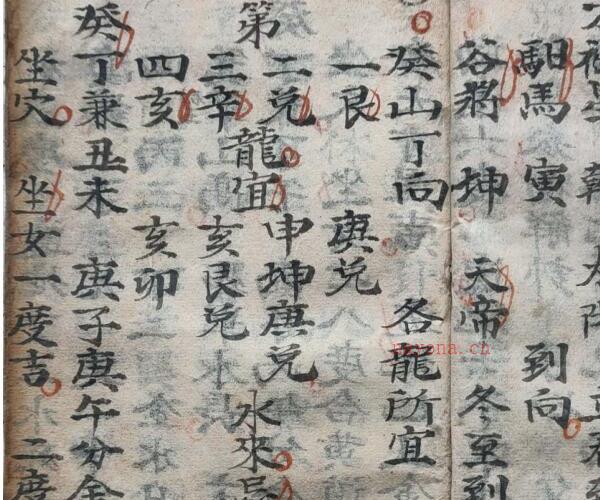 馬 寅 到向
谷將 坤 天帝 冬至到
癸山丁向 各龍所宜
第
一艮
二兌
三辛
四亥
龍宜
庚兌
申坤庚兌
亥艮兌
亥卯
水來忌
癸丁兼丑未 庚子庚午分金
坐穴 坐女一度吉 二度
nayona.cn